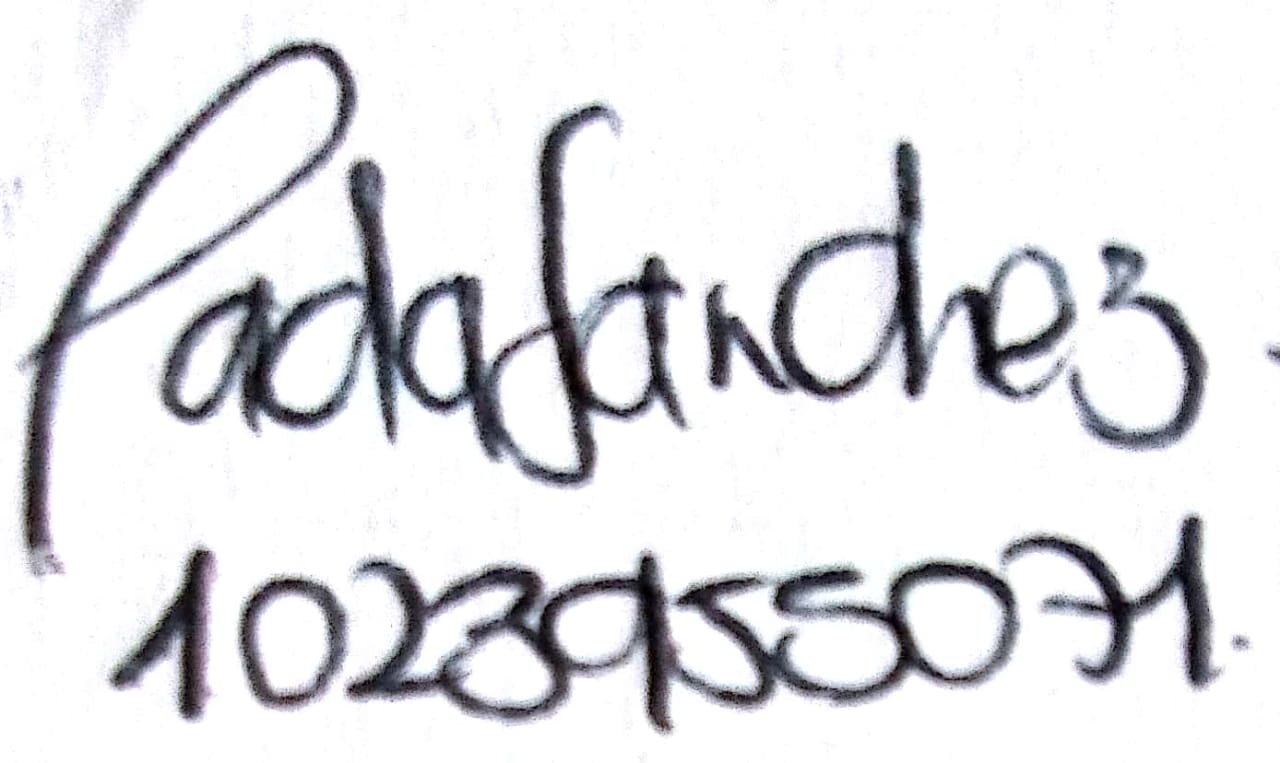 Paola Sanchez
1023955071.